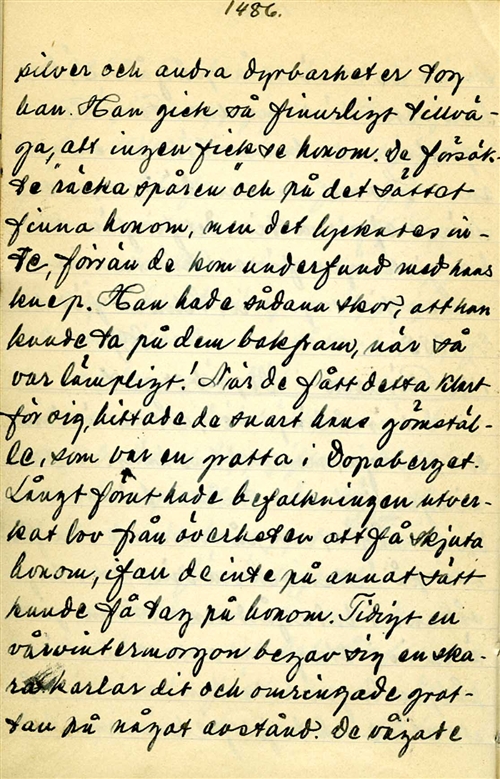 1486.
silver och andra dyrbarheter tog
han. Han gick så finurligt tillvä-
ga, att ingen fick se honom. De försök-
te "räcka spåren" och på det sättet
finna honom, men det lyckades in-
te, förrän de kom underfund med hans
knep. Han hade sådana skor, att han
kunde ta på dem bakfram, när så
var lämpligt! När de fått detta klart
för sig, hittade de snart hans gömstäl-
le, som var en grotta i Dopaberget.
Långt förut hade befolkningen utver-
kat lov från överheten att få skjuta
honom, ifall de inte på annat sätt
kunde få tag på honom. Tidigt en
vårvintermorgon begav sig en ska-
ra karlar dit och omringade grot-
tan på något avstånd. De vågade